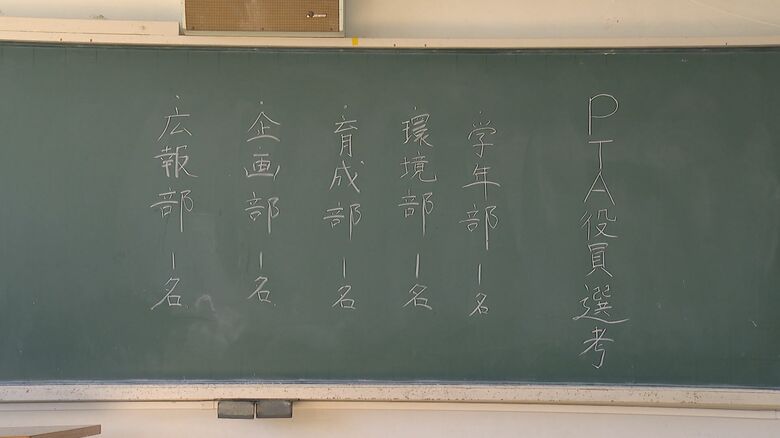 PTA役員選考
・学年部 1名
・環境部 1名
・育成部 1名
・企画部 1名
・広報部 1名